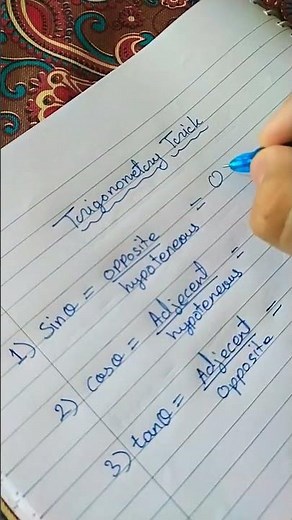 Trigonometry Trick
1) Sinθ = opposite/hypoteneous = O
2) Cosθ = Adjecent/hypoteneous =
3) tanθ = Adjecent/opposite =